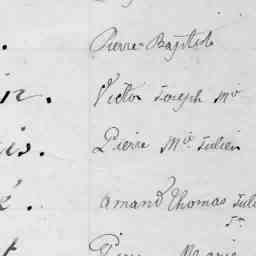 Pierre Baptiste
in. Victor Joseph Mie
is. Pierre Mie Julien
é. Amand Thomas Juli
Pier Marie